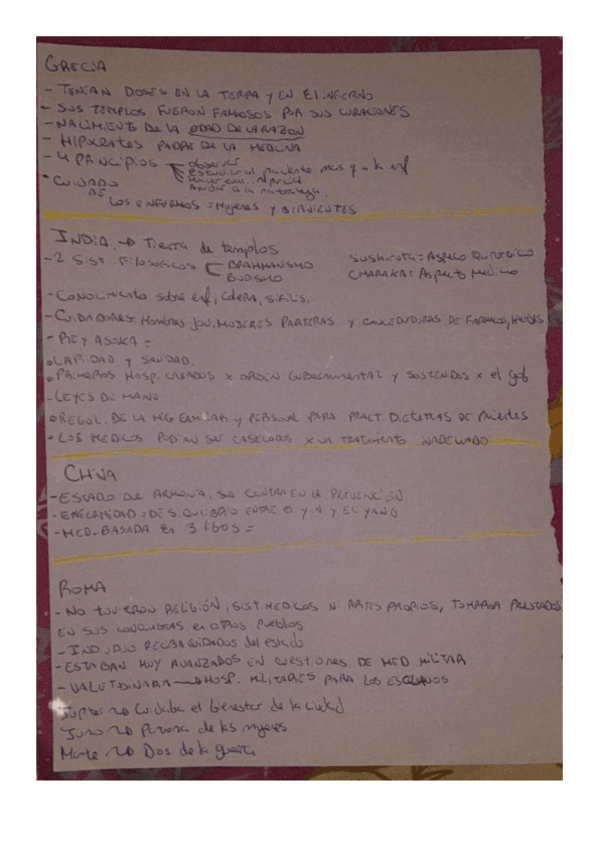 GRECIA
- TENÍAN DIOSES EN LA TIERRA y EN El INFIERNO
- SUS TEMPLOS FUERON FAMOSOS POR SUS CURACIONES
- NACIMIENTO DE LA EDAD DE LA RAZON
- HIPOCRATES PADRE DE LA MEDICINA
- 4 PRINCIPIOS
observar
estudiar al paciente mas q a la enf
Ayudar a la naturaleza.
- CUIDADO DE LOS ENFERMOS = Mujeres y SIRVIENTES
INDIA → Tierra de templos
- 2 SIST. FILOSOFICOS
BRAHMANISMO
BUDISMO
SUSHURUTA = ASPECTO QUIRÚRGICO
CHARAKA = ASPECTO MEDICO
- CONOCIMIENTO SOBRE enf, COLERA, SIFILIS.
- CUIDADORES: HOMBRES JOV. MUJERES PARTERAS Y CONOCEDORAS DE FARMACOS, HIERBAS
- REY ASOKA =
• CARIDAD y SANIDAD.
• PRIMEROS HOSP. CREADOS x ORDEN GUBERNAMENTAL y SOSTENIDOS x el gob
- LEYES DE MANÚ
• REGUL. DE LA HIG FAMILIAR y PERSONAL PARA PRACT. DIETETICAS DE
• LOS MEDICOS PODIAN SER CASTIGADOS x UN TRATAMIENTO INADECUADO
CHINA
- ESTADO DE ARMONIA, SE CENTRA EN LA PREVENCIÓN
- ENFERMEDAD = DESEQUILIBRIO ENTRE el YIN y EL YANG
- MED. BASADA en 3 libros =
ROMA
- NO TUVIERON RELIGIÓN, SIST. MEDICOS NI ARTES PROPIOS, TOMARON PRESTADOS
EN SUS CONQUISTAS en OTROS PUEBLOS
- INDIVIDUO RECIBIA CUIDADOS del estado
- ESTABAN MUY AVANZADOS EN CUESTIONES DE MED. MILITAR
- VALETUDINARIA → HOSP. MILITARES PARA LOS ESCLAVOS
Jupiter → Cuidaba el bienestar de la ciudad
Juno → Patrona de las mujeres
Marte → Dios de la guerra